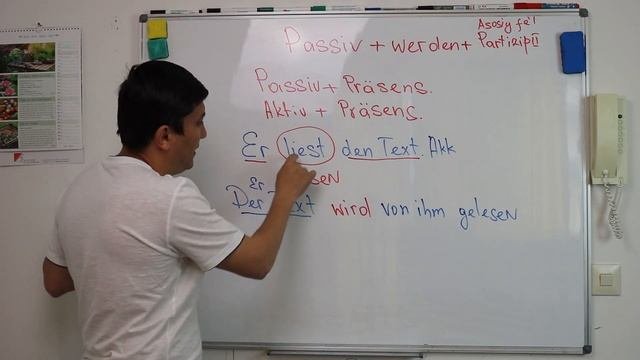 Asosiy fe'l
Passiv + werden + Partizip II
Passiv + Präsens.
Aktiv + Präsens.
Er liest den Text. Akk
Er
Der Text wird von ihm gelesen